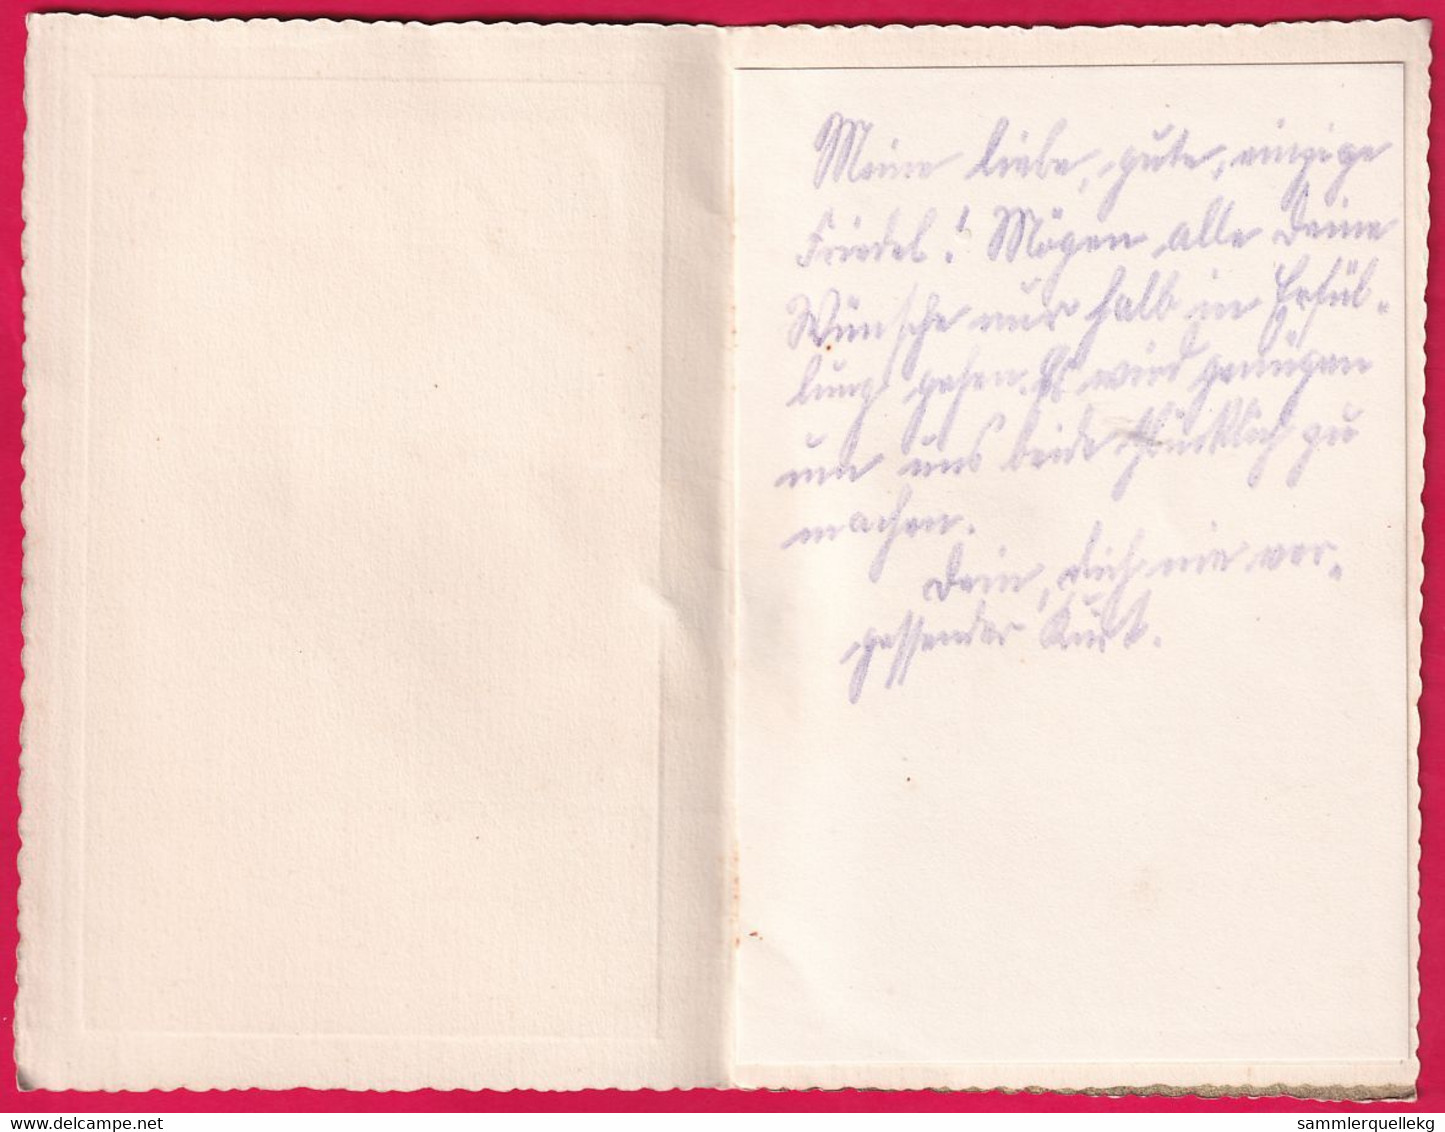 Meine liebe, gute, einzige
Friedel! Mögen alle Deine
Wünsche nur halb in Erfül-
lung gehen. Es wird genügen
um uns beide glücklich zu
machen.
Dein, dich nie ver-
gessender Kurt.
sammlerquellekg
delcampe.net